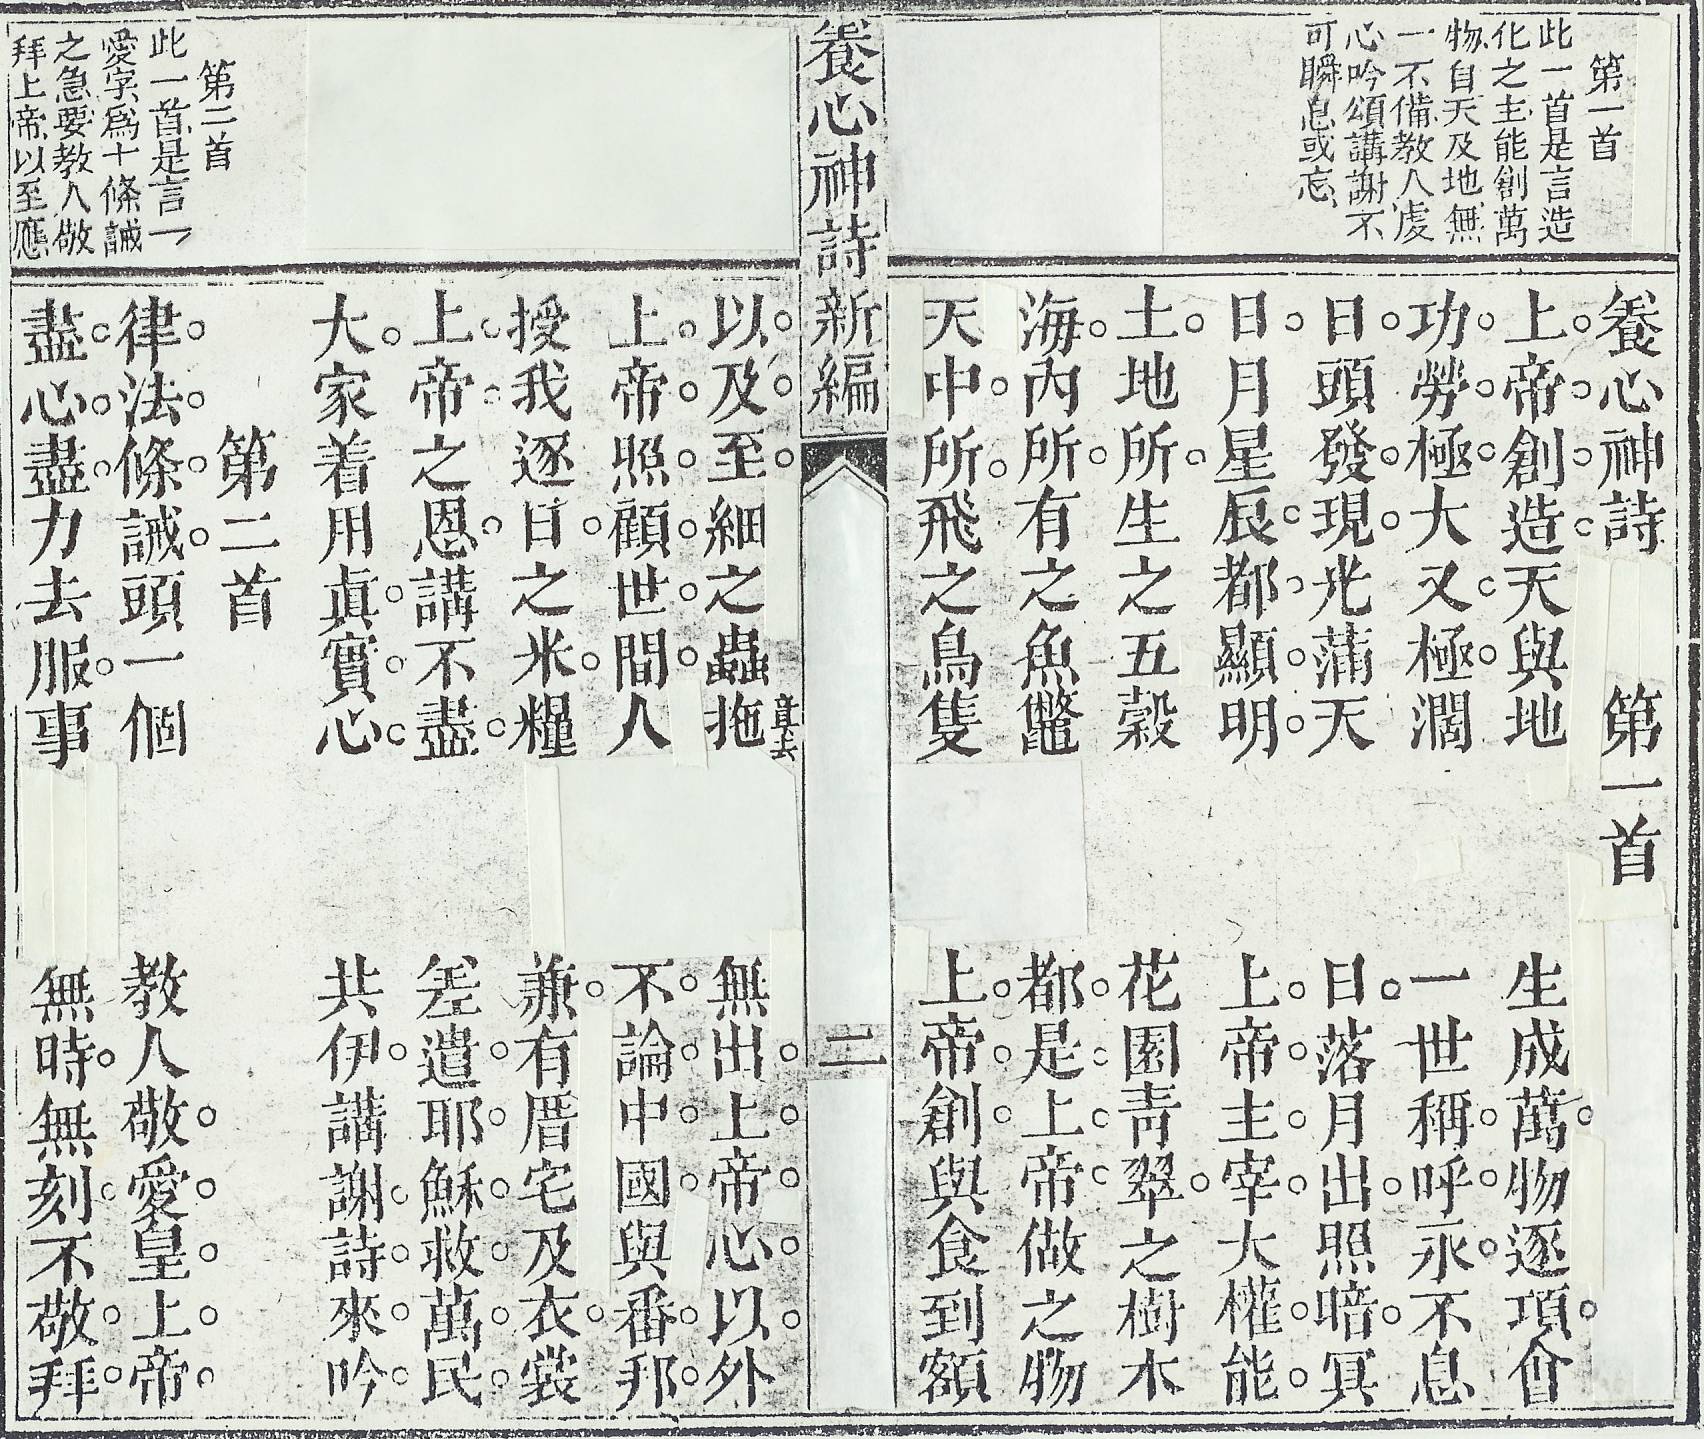 第一首
此一首是言造
化之主能創萬
物自天及地無
一不備教人虔
心吟頌講謝不
可瞬息或忘
養心神詩 第一首
上帝創造天與地 生成萬物逐項會
功勞極大又極濶 一世稱呼永不息
日頭發現光蒲天 日落月出照暗冥
日月星辰都顯明 上帝主宰大權能
土地所生之五穀 花園青翠之樹木
海內所有之魚鼈 都是上帝做之物
天中所飛之鳥隻 上帝創與食到額
養心神詩新編
二
以及至細之蟲拖 無出上帝心以外
上帝照顧世間人 不論中國與番邦
授我逐日之米糧 兼有厝宅及衣裳
上帝之恩講不盡 差遣耶穌救萬民
大家着用眞實心 共伊講謝詩來吟
第二首
此一首是言一
愛字爲十條誡
之急要教人敬
拜上帝以至應
第二首
律法條誡頭一個 教人敬愛皇上帝
盡心盡力去服事 無時無刻不敬拜